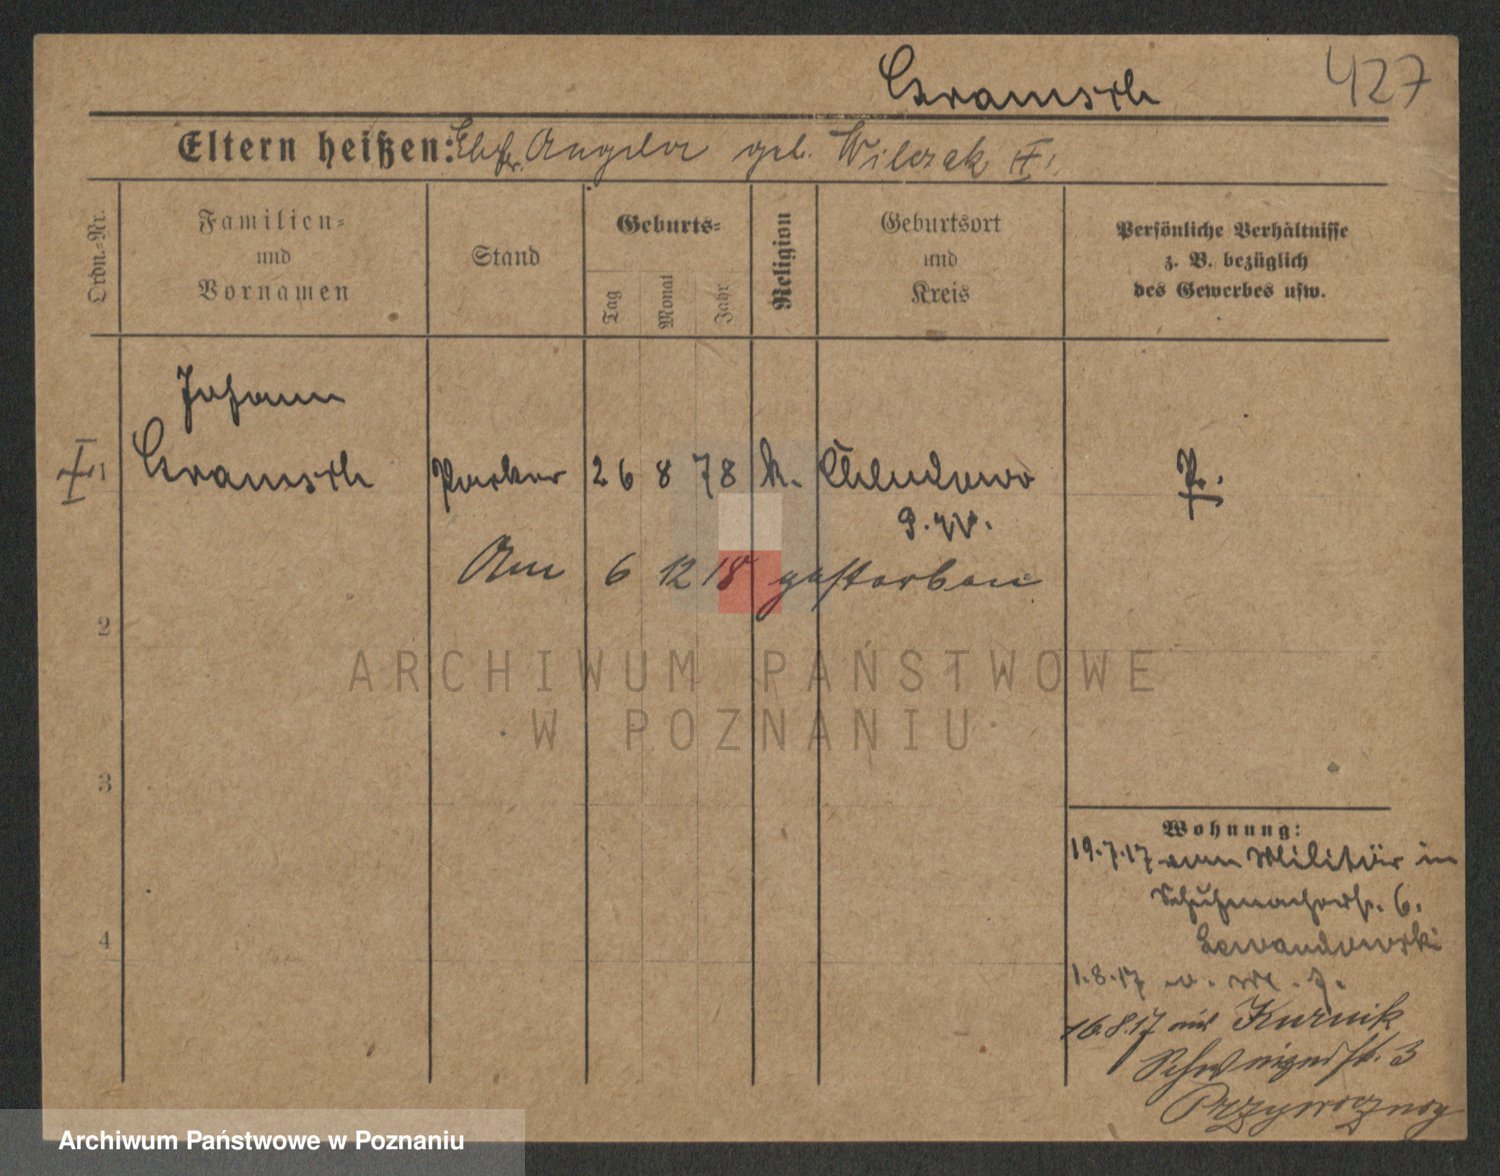 Gramsch 427
Eltern heißen: Ehefr. Angela geb. Wilczak II.
Ordn.-Nr.
Familien-
und
Vornamen
Stand
Geburts-
Tag
Monat
Jahr
Religion
Geburtsort
und
Kreis
Persönliche Verhältnisse
z. B. bezüglich
des Gewerbes usw.
Johann
1 Gramsch 26 8 78 k. Chludowo Pr.
P. W.
Am 6 12 18 gestorben
2
ARCHIWUM PAŃSTWOWE
W POZNANIU
3
Wohnung:
19.7.17 vom Militär in
Schuhmacherstr. 6.
4 Lewandowski
1.8.17 v. M. z.
16.8.17 aus Kurnik
3
Archiwum Państwowe w Poznaniu